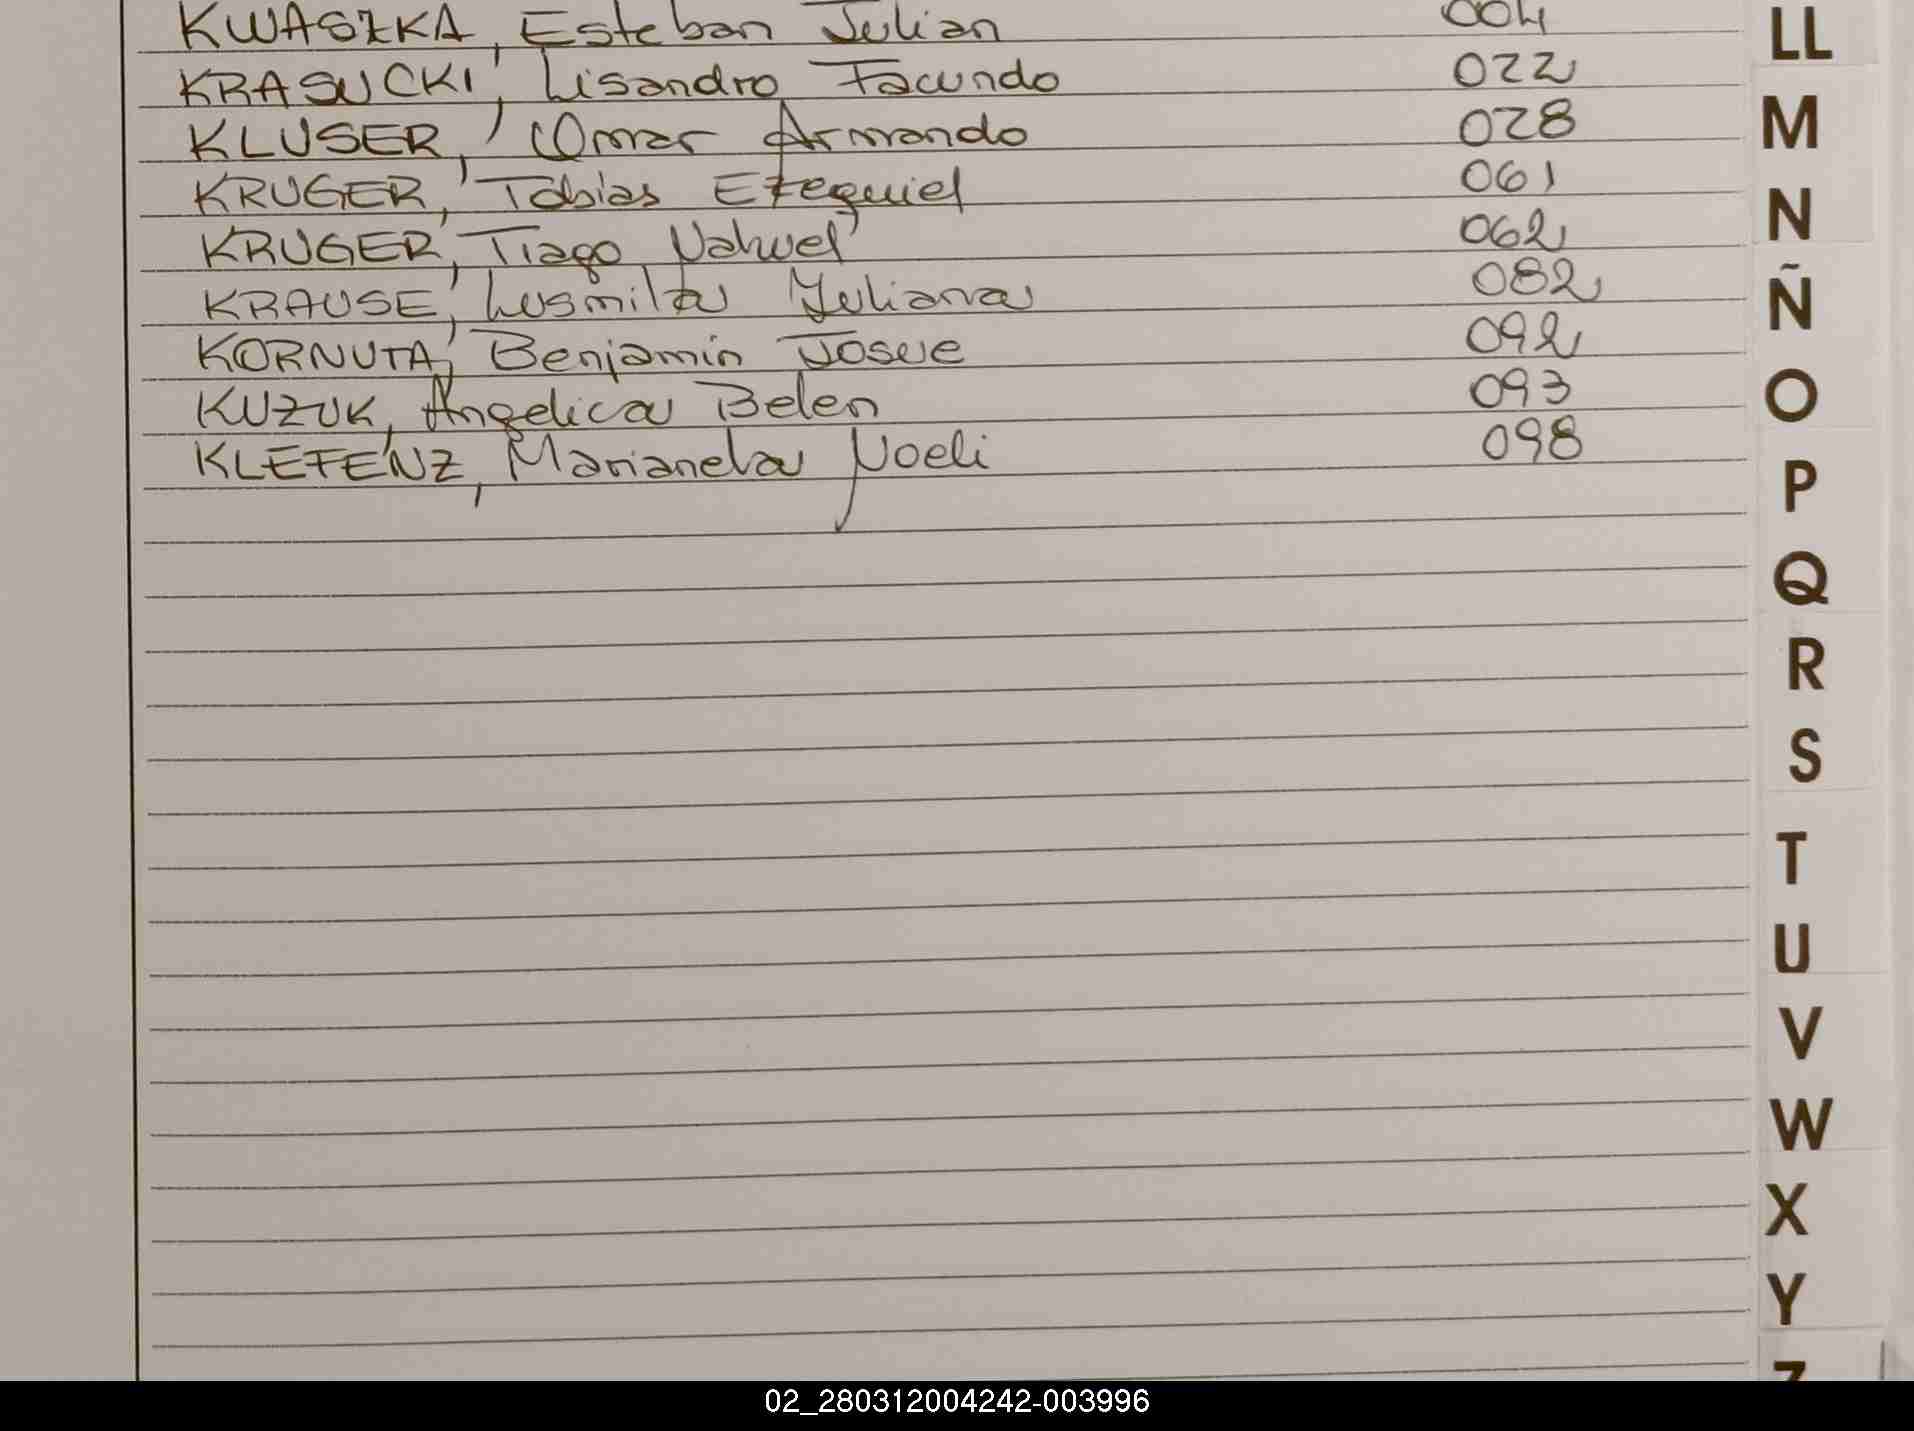 KWASZKA, Esteban Julian 004
KRASUCKI, Lisandro Facundo 022
KLUSER, Omar Armando 028
KRUGER, Tobias Ezequiel 061
KRUGER, Tiago Nahuel 062
KRAUSE, Lusmila Yuliana 082
KORNUTA, Benjamin Josue 092
KUZUK, Angelica Belen 093
KLEFENZ, Marianela Noeli 098
LL
M
N
Ñ
O
P
Q
R
S
T
U
V
W
X
Y
Z
02_280312004242-003996